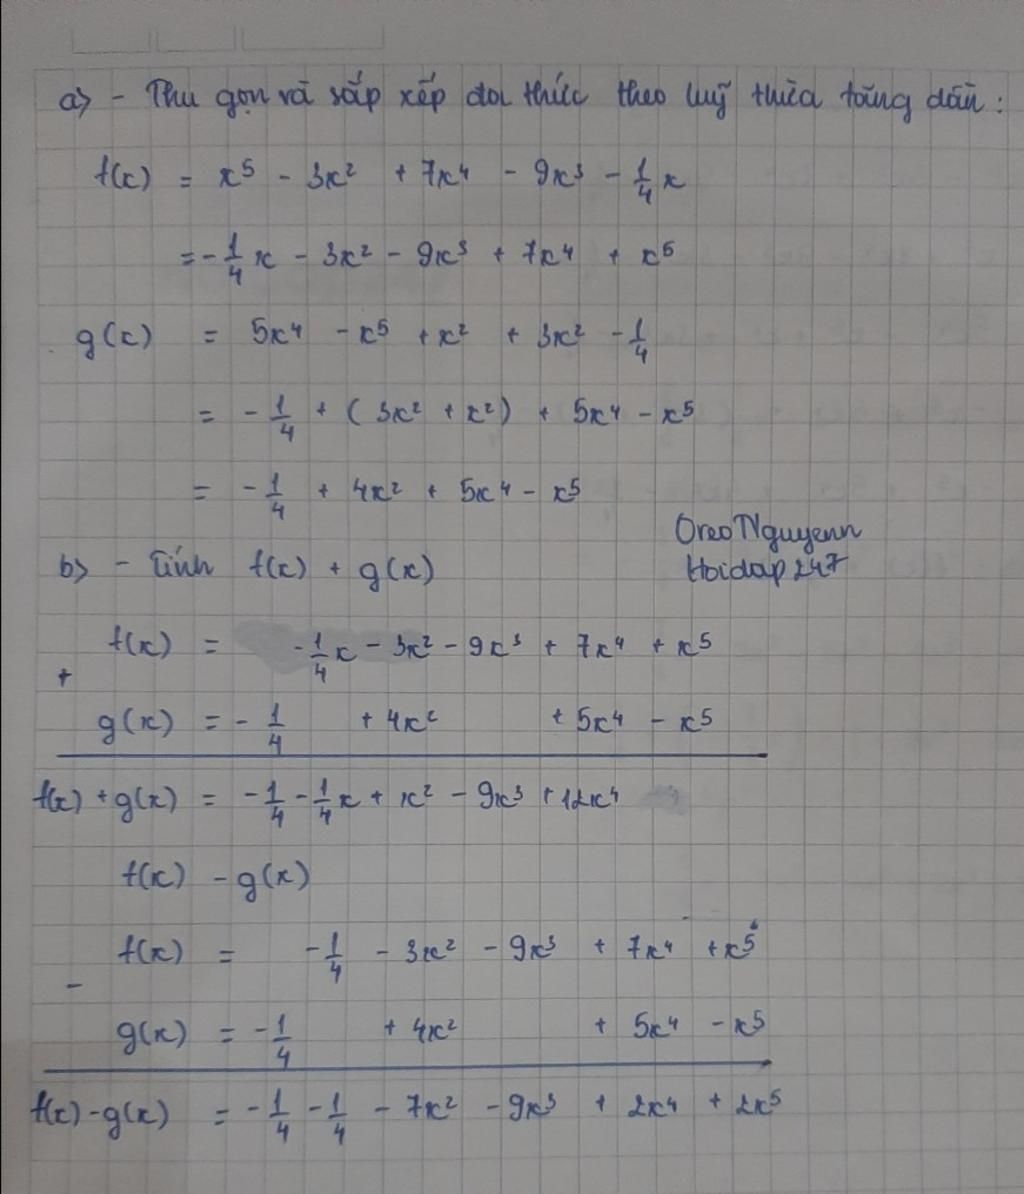 a) - Thu gọn và sắp xếp đa thức theo luỹ thừa tăng dần:
f(x) = x⁵ - 3x² + 7x⁴ - 9x³ - 1/4 x
= - 1/4 x - 3x² - 9x³ + 7x⁴ + x⁵
g(x) = 5x⁴ - x⁵ + x² + 3x² - 1/4
= - 1/4 + (3x² + x²) + 5x⁴ - x⁵
= - 1/4 + 4x² + 5x⁴ - x⁵
OreoNguyenn
Hoidap247
b) - Tính f(x) + g(x)
f(x) = - 1/4 x - 3x² - 9x³ + 7x⁴ + x⁵
+
g(x) = - 1/4 + 4x² + 5x⁴ - x⁵
f(x) + g(x) = - 1/4 - 1/4 x + x² - 9x³ + 12x⁴
f(x) - g(x)
f(x) = - 1/4 - 3x² - 9x³ + 7x⁴ + x⁵
-
g(x) = - 1/4 + 4x² + 5x⁴ - x⁵
f(x) - g(x) = - 1/4 - 1/4 - 7x² - 9x³ + 2x⁴ + 2x⁵